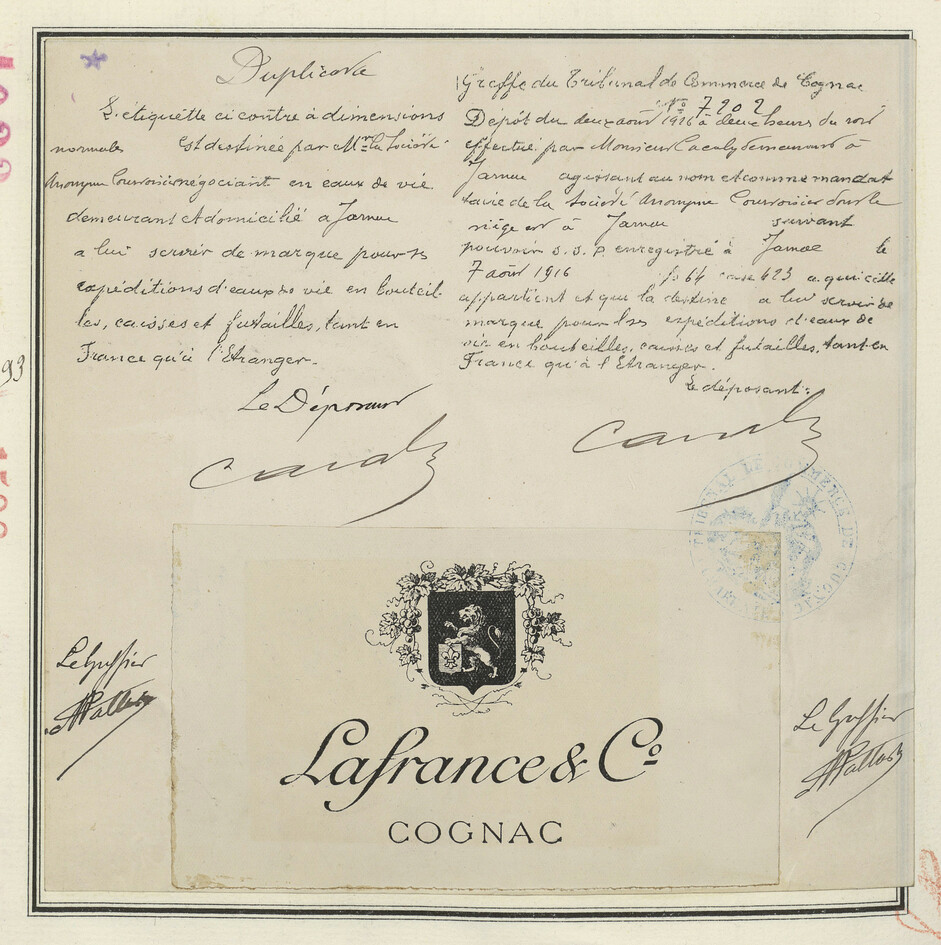 Duplicata
L'étiquette ci contre à dimensions
normales est destinée par Mr la Société
Anonyme Courvoisier négociant en eaux de vie
demeurant et domicilié a Jarnac
a lui servir de marque pour ses
expéditions d'eaux de vie en bouteil-
les, caisses et futailles, tant en
France qu'à l'Etranger.
Le Déposant
Greffe du Tribunal de Commerce de Cognac
No 7202
Dépôt du deux aout 1916 à deux heures du soir
effectué par Monsieur demeurant à
Jarnac agissant au nom et comme mandat
taire de la Société Anonyme Courvoisier dont le
siège est à Jarnac suivant
pouvoir s.s.p. enregistré à Jarnac le
7 août 1916 fo 64 case 423 a qui elle
appartient et que la destine a lui servir de
marque pour ses expéditions d'eaux de
vie en bouteilles, caisses et futailles, tant en
France qu'à l'Etranger.
Le déposant:
TRIBUNAL DE COMMERCE DE COGNAC
93
Le Greffier
Lafrance & Co
COGNAC
Le Greffier